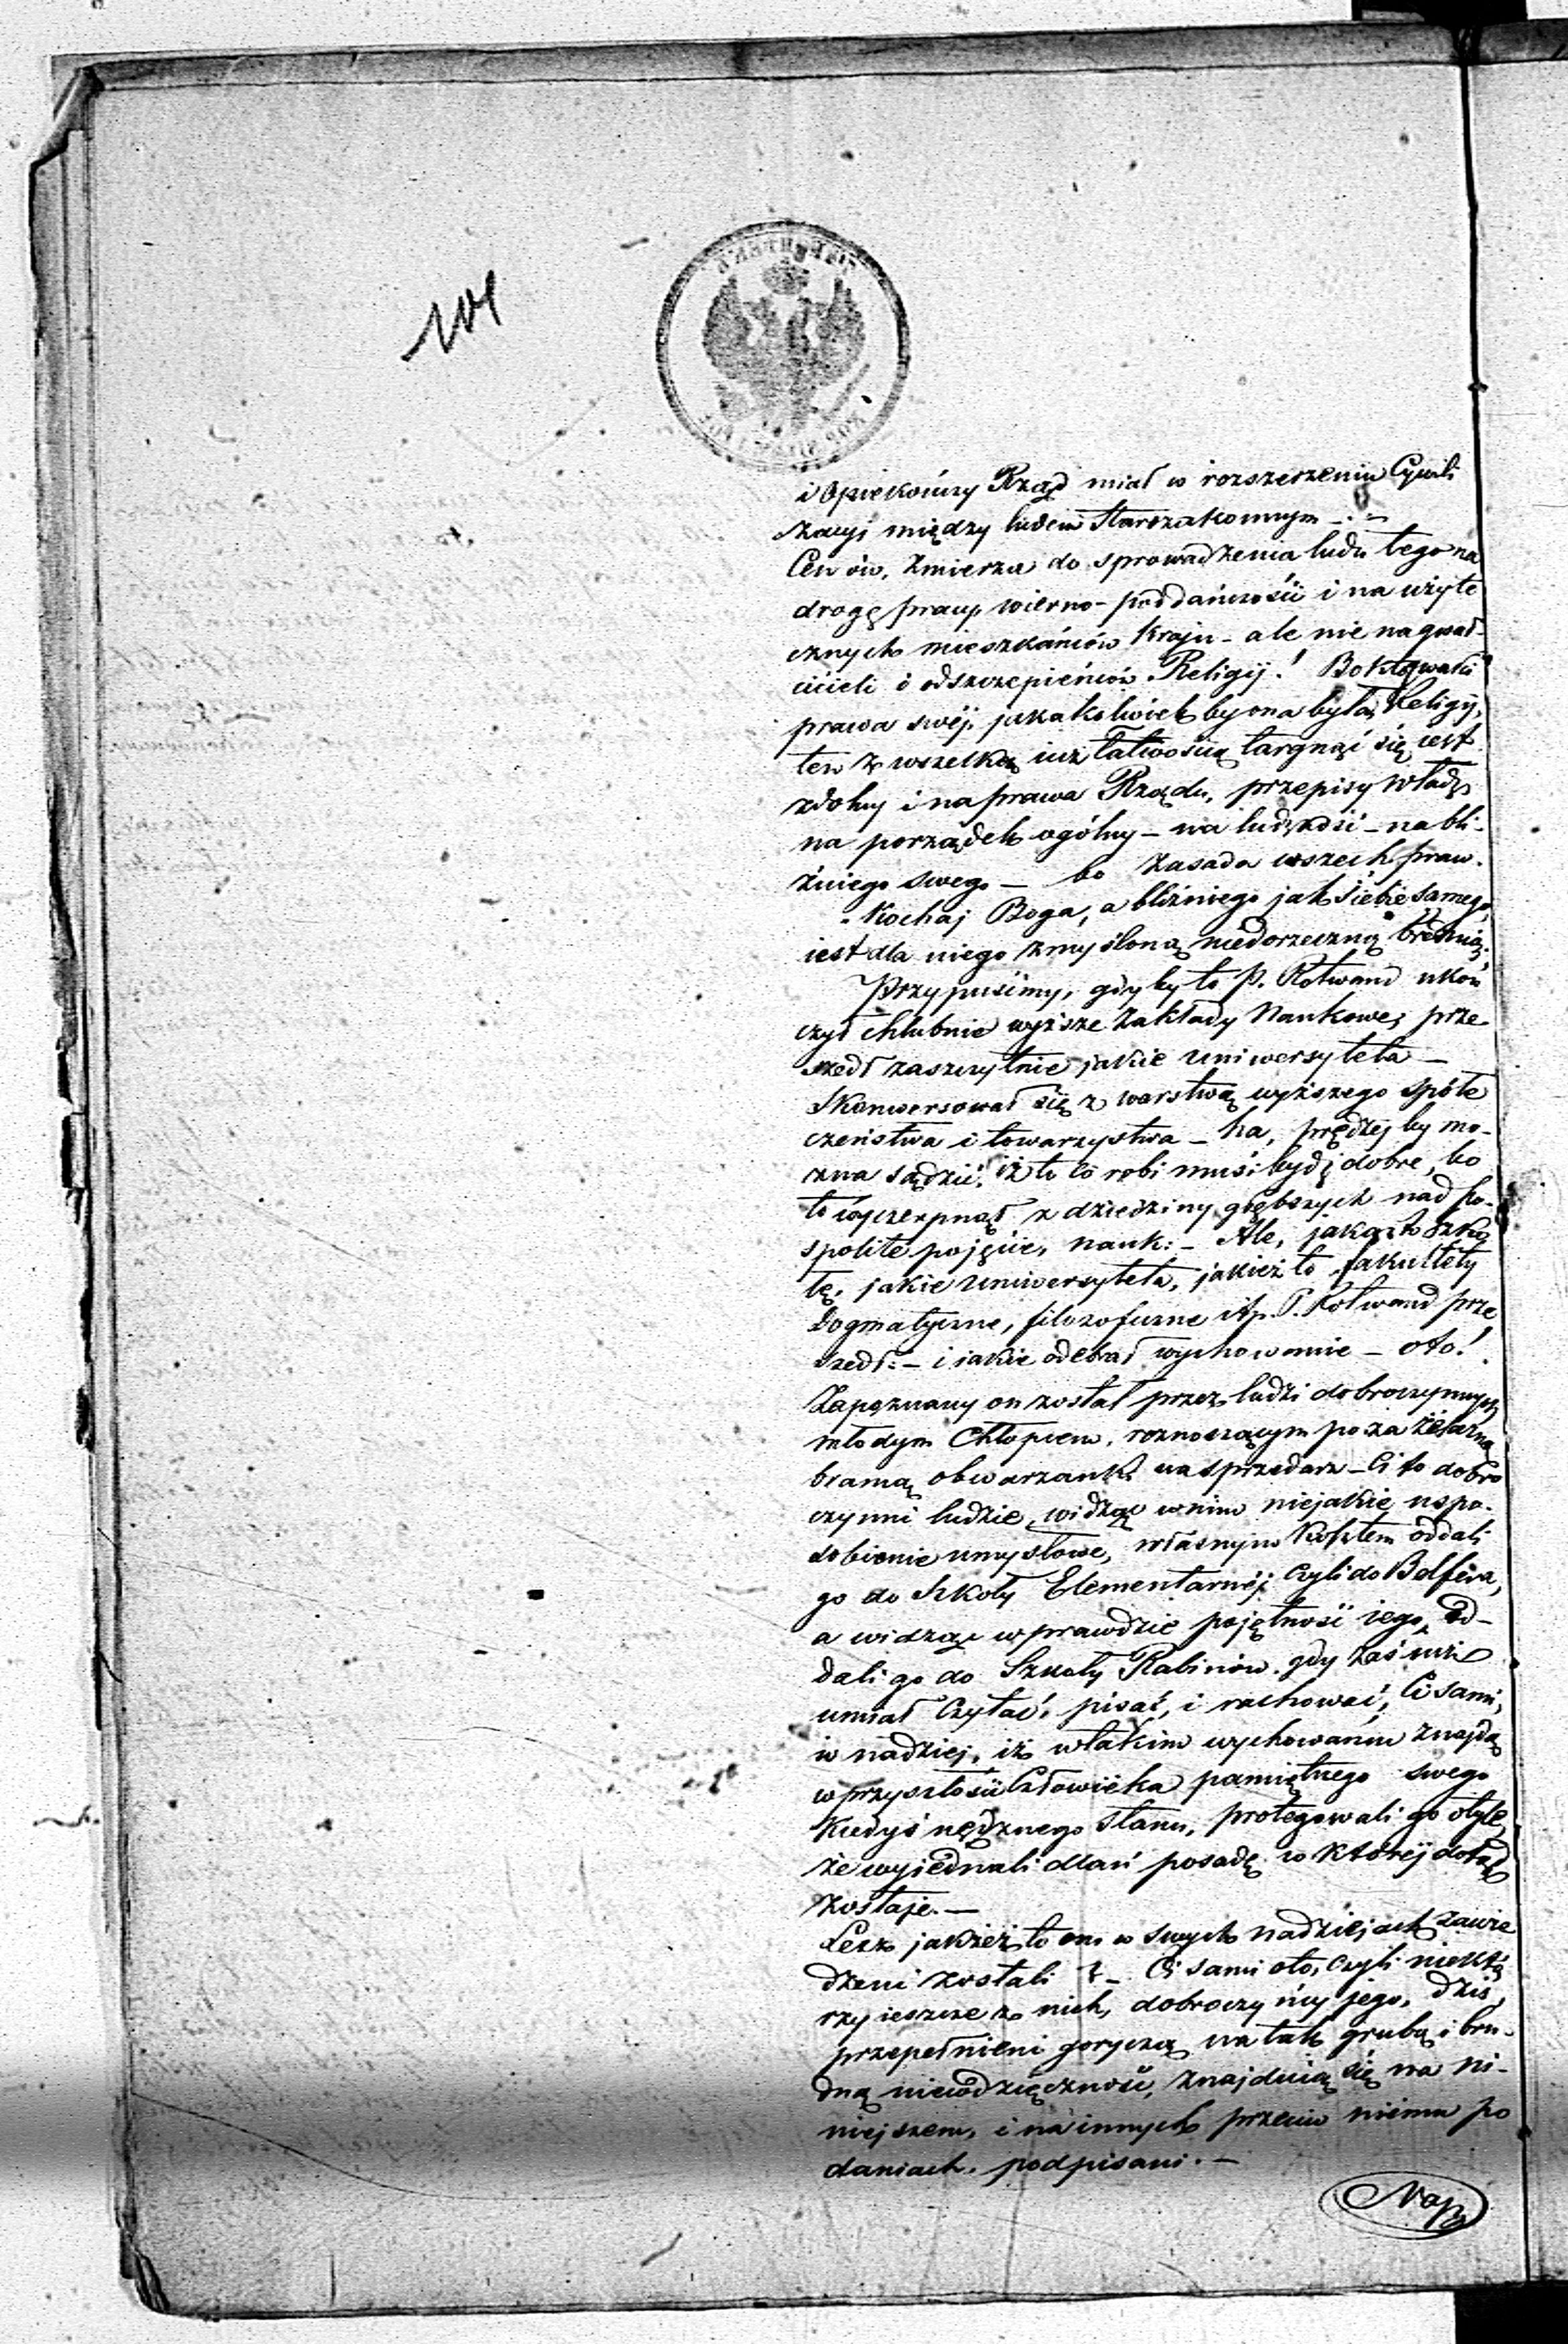 101
i Opiekończy Rząd miał w rozszerzeniu Cywili
zacyi między ludem Starozakonnym —
Cel ów, zmierza do sprowadzenia ludu tego na
drogę pracy, wierno-poddańczości i na użyte
cznych mieszkańców Kraju - ale nie na gwał-
cicieli i odszczepieńców Religij! Bo kto gwałci
prawa swéj, jakakolwiek by ona była, Religij,
ten z wszelką już łatwością targnąć się jest
zdolny i na prawa Rządu, przepisy Władz,
na porządek ogólny - na ludzkość - na bli-
źniego swego — bo zasada wszech praw.
"Kochaj Boga, a bliźniego jak siebie samego,"
iest dla niego zmysloną niedorzeczną brednią.
Przypuśćmy, gdyby to P. Rotwand ukoń
czył chlubnie wyższe Zakłady Naukowe, prze
szedł zaszczytnie jakie uniwersyteta —
Skonwersował się z warstwą wyższego społe
czeństwa i towarzystwa - ha, prędzej by mo-
żna sądzić, iż to co robi musi bydź dobre, bo
to wyczerpnął z dziedziny głębszych nad po-
spolite pojęcie, nauk: - Ale, jakąż to szko
łę, jakie uniwersyteta, jakież to fakultety
Dogmatyczne, filozoficzne itp. P. Rotwand prze
szedł: - i jakie odebrał wychowanie - oto!
Zapoznany on został przez ludzi dobroczynnych
młodym Chłopcem, roznoszącym po za żelazną
bramą obwarzanki na sprzedarz - Ci to dobro
czynni ludzie, widząc w nim niejakie uspo-
sobienie umysłowe, własnym kosztem oddali
go do Szkoły Elementarnéj czyli do Belfera,
a widząc wprawdzie pojętność iego, od-
dali go do Szkoły Rabinów. gdy zaś już
umiał Czytać, pisać, i rachować, Ci sami,
w nadziej, iż w takim wychowaniu znajdą
w przyszłości Człowieka pamiętnego swego
kiedyś nędznego stanu, protegowali go o tyle,
że wyiednali dlań posadę w któréj dotąd
zostaje. —
Lecz jakżeż to oni w swych nadziejach zawie
dzeni zostali? - Ci sami oto, czyli niektó
rzy ieszcze z nich, dobroczyńcy jego, dziś,
przepełnieni goryczą na tak grubą i bru-
dną niewdzięczność, znajduią się na ni-
niejszem, i na innych przeciw niemu po
daniach, podpisani. —